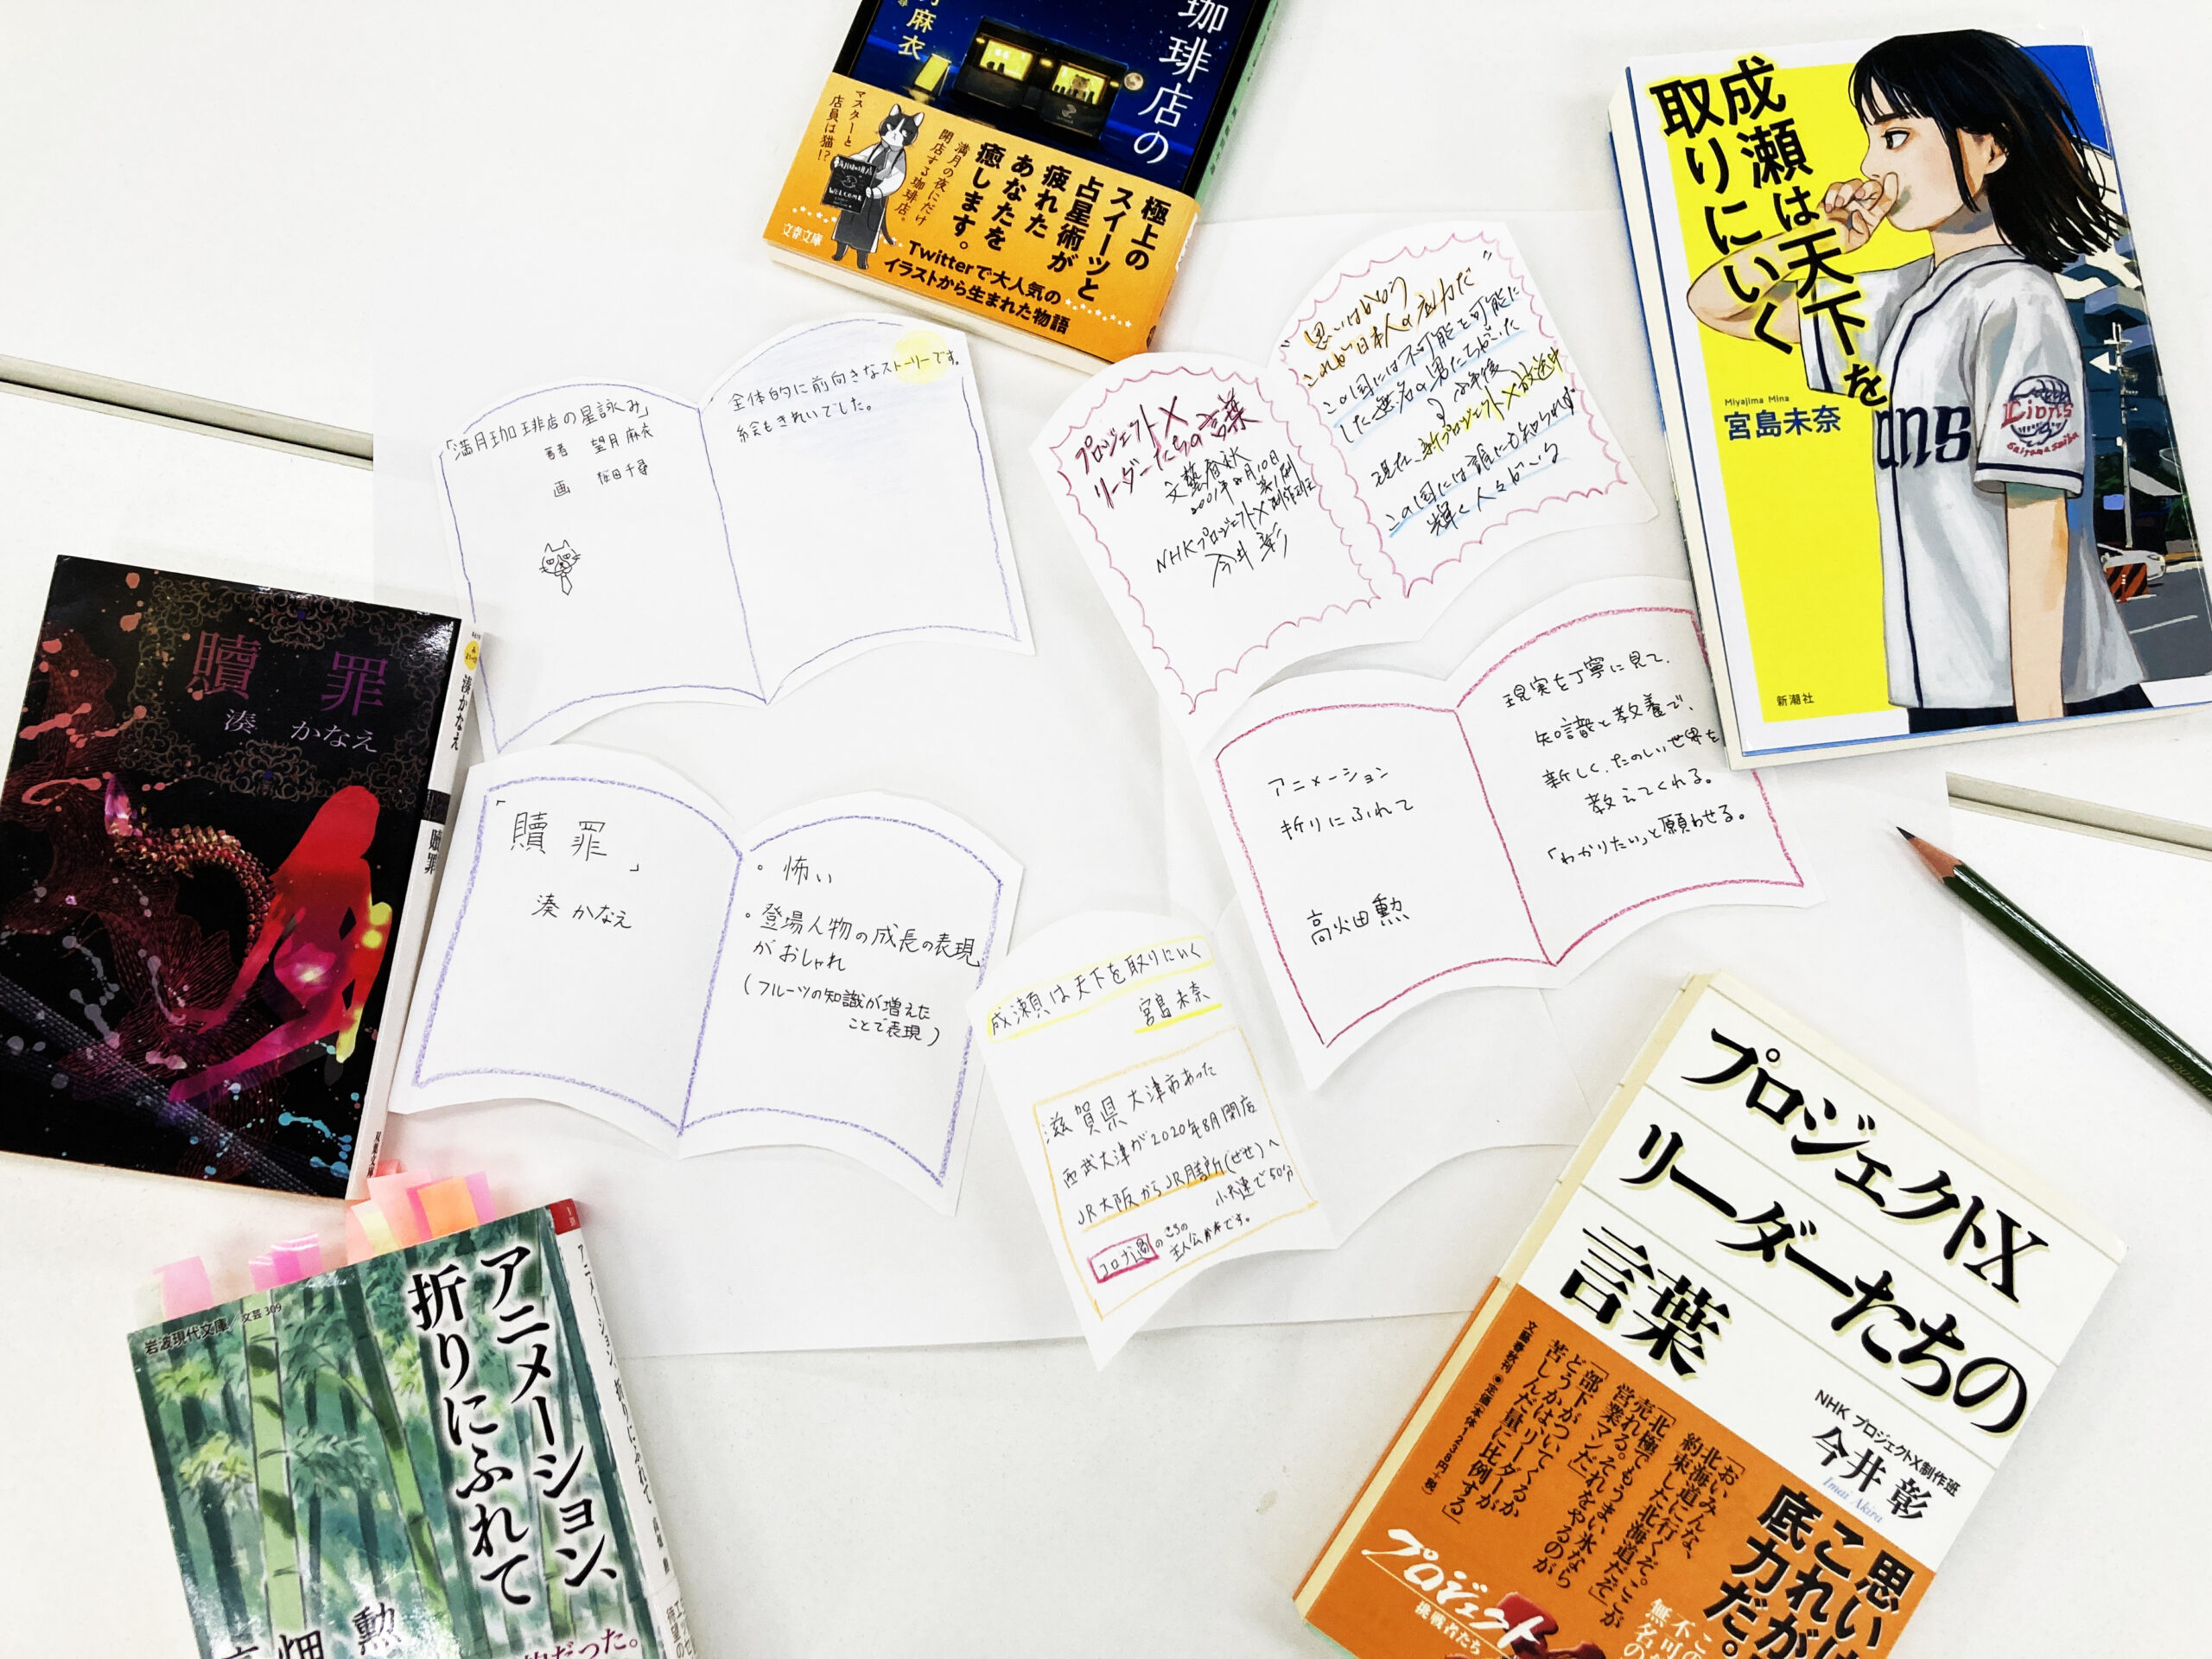 珈琲店の
麻衣
極上の
スイーツと
占星術が
疲れた
あなたを
癒します。
満月の夜にだけ
開店する珈琲店。
マスターと
店員は猫!?
WELCOME
文春文庫
Twitterで大人気の
イラストから生まれた物語
成瀬は天下を
取りにいく
Miyajima Mina
宮島未奈
新潮社
ans
Lions
「満月珈琲店の星詠み」
著者 望月麻衣
画 桜田千尋
全体的に前向きなストーリーです。
絵もきれいでした。
プロジェクトX
リーダーたちの言葉
文藝春秋
2001年8月10日 第1刷
NHKプロジェクトX制作班
今井彰
"思いはかなう
これが日本人の底力だ"
この国には不可能を可能に
した無名の男たちがいた
現在、新プロジェクトX放送中
この国には誰にも知られず
輝く人々がいる
贖罪
湊かなえ
湊かなえ
贖罪
双葉文庫
「贖罪」
湊かなえ
。怖い
。登場人物の成長の表現
がおしゃれ
(フルーツの知識が増えた
ことで表現)
アニメーション
折りにふれて
高畑勲
現実を丁寧に見て、
知識と教養で、
新しく、たのしい世界を
教えてくれる。
「わかりたい」と願わせる。
成瀬は天下を取りにいく
宮島未奈
滋賀県大津市あった
西武大津が2020年8月閉店
JR大阪からJR膳所(ぜぜ)へ
小快速で50分
コロナ過のころの
主人公が本です。
岩波現代文庫/文芸309
アニメーション、
折りにふれて
畑 勲
だった。
アニメーション、折りにふれて 高畑 勲
プロジェクトX
リーダーたちの
言葉
NHK プロジェクトX制作班
今井 彰
Imai Akira
思いは
これが
底力だ。
「おいみんな、
北海道に行くぞ。ここが
約束した北海道だぞ」
「北極でもうまい氷なら
売れる。それをやるのが
営業マンだ」
「部下がついてくるか
どうかは、リーダーが
苦しんだ量に比例する」
文藝春秋刊 ●定価(本体1238円+税)
プロジェクト
挑戦者たち
不可
無名の